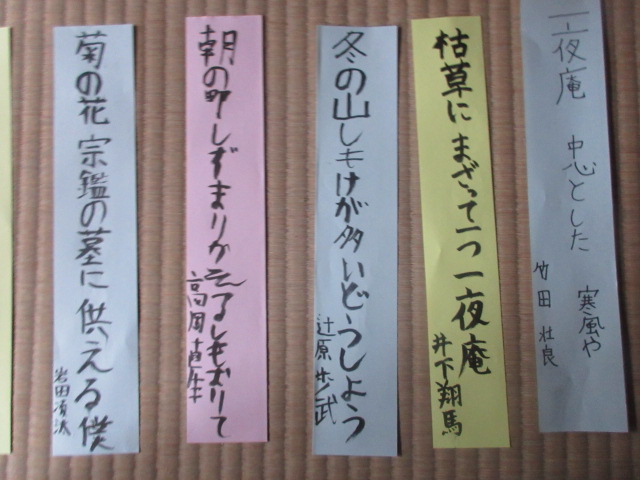 一夜庵 中心とした 寒風や
竹田 壮良
枯草に まざって一つ 一夜庵
井下翔馬
冬の山しもけが多いどうしよう
辻原歩武
朝の町しずまりかえるしもおりて
高岡直生
菊の花 宗鑑の墓に 供える僕
岩田